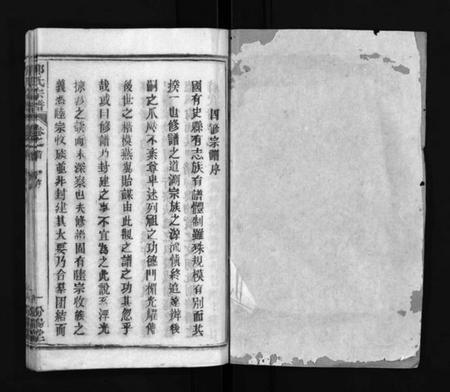 四修宗譜序
國有史縣有志族有譜體制雖殊規模有別而其
揆一也修譜之道溯宗族之源流慎終追遠辨後
嗣之爪瓞不紊尊卑述列祖之功德門楣光耀傳
後世之楷模燕翼貽謀由此觀之譜之功其忽乎
哉或曰修譜乃封建之事不宜為之此說乃浮光
掠影之談而未深察也夫修譜固有睦宗收族之
義然睦宗收族並非封建其大要乃合羣團結而
氏宗譜
卷之首
汾陽堂